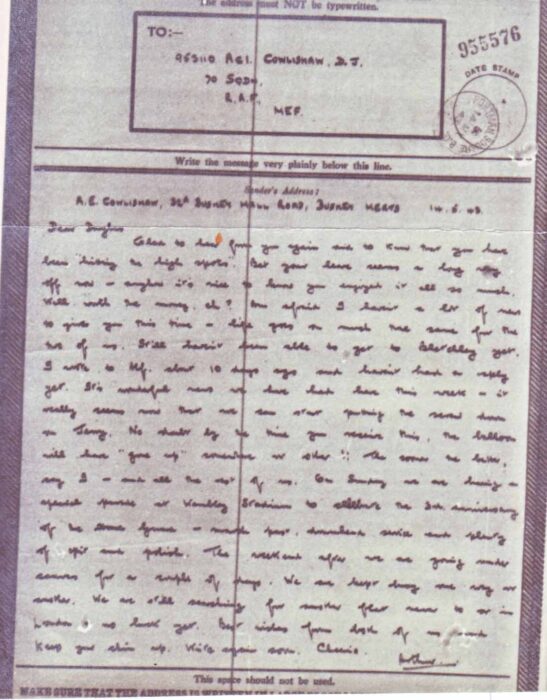 The address must NOT be typewritten.
TO:—
A.C.1. COWLISHAW, D.J.
70 SQDN,
R.A.F.
MEF.
955576
DATE STAMP
Write the message very plainly below this line.
Sender's Address:
A.E. COWLISHAW, 32A BUSHEY HALL ROAD, BUSHEY HERTS 14.5.43.
Dear Douglas
Glad to hear from you again and to know that you have
been hitting the high spots. But your leave seems a long way
off now - anyhow it's nice to know you enjoyed it all so much.
Well worth the money, eh? Am afraid I haven't a lot of news
to give you this time - life goes on much the same for the
two of us. Still haven't been able to get to Bletchley yet.
I wrote to about 10 days ago and haven't had a reply
yet. It's wonderful news we have had here this week - it
really seems now that we can start putting the screws down
on Jerry. No doubt by the time you receive this, the balloon
will have "gone up" somewhere or other!! The sooner the better,
say I - and all the rest of us. On Sunday we are having a
special parade at Wembley Stadium to celebrate the 3rd anniversary
of the Home Guard - march past, drumhead service and plenty
of spit and polish. The weekend after we are going under
canvas for a couple of days. We are kept busy one way or
another. We are still searching for another flat nearer to or in
London - no luck yet. Best wishes from both of us and
keep your chin up. Write again soon. Cheerio.
Arthur
This space should not be used.
MAKE SURE THAT THE ADDRESS IS WRITTEN IN LARGE